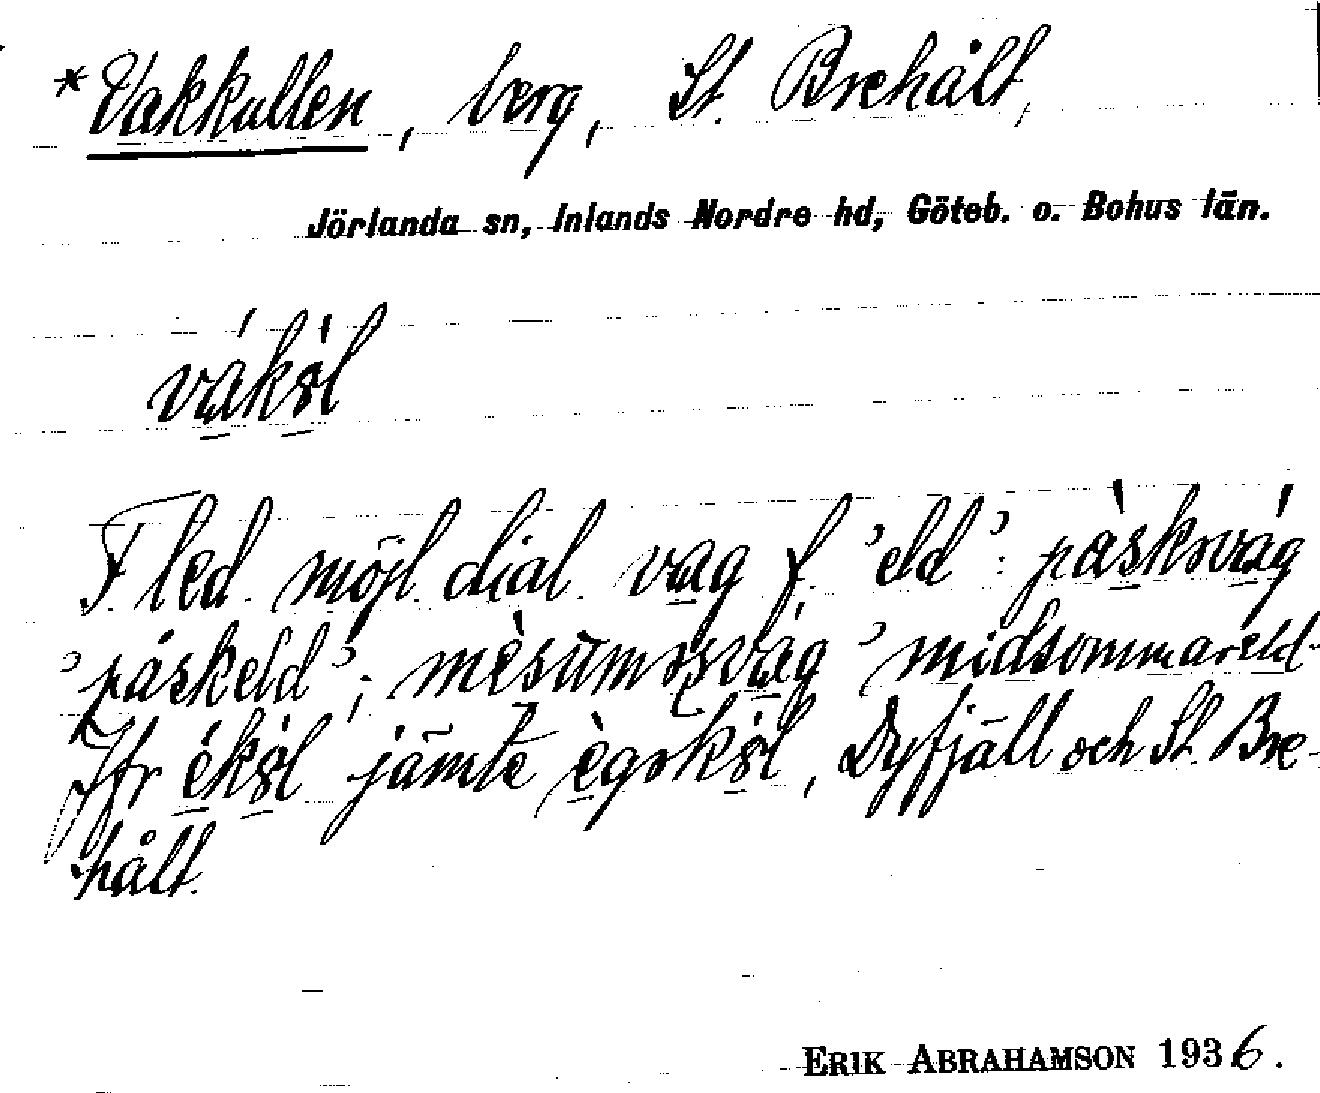 *Vakkullen, berg, St. Brehält,
Jörlanda sn, Inlands Nordre hd, Göteb. o. Bohus län.
váks̀l
F. led. möjl. dial. vag f. 'eld': påskvåg
'påskeld'; 'midsommareld.
Jfr jämte Dyfjäll och St. Bre-
hålt.
ERIK ABRAHAMSON 1936.